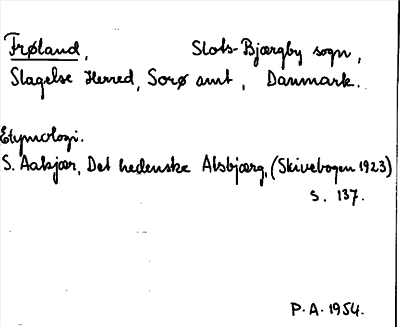 Frøland, Slots-Bjærgby sogn,
Slagelse Herred, Sorø amt, Danmark.
Etymologi.
S. Aakjær, Det hedenske Alsbjærg, (Skivebogen 1923)
s. 137.
P.A. 1954.